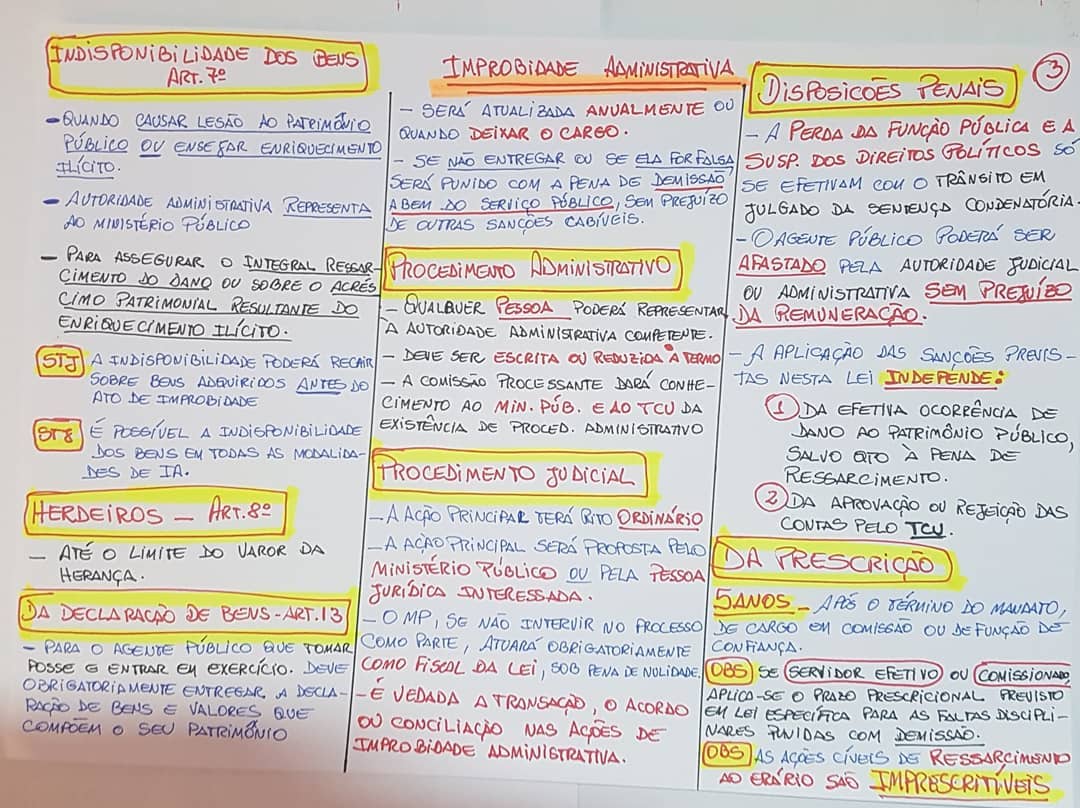 INDISPONIBILIDADE DOS BENS
ART. 7º
- QUANDO CAUSAR LESÃO AO PATRIMÔNIO
PÚBLICO OU ENSEJAR ENRIQUECIMENTO
ILÍCITO.
- AUTORIDADE ADMINISTRATIVA REPRESENTA
AO MINISTÉRIO PÚBLICO
- PARA ASSEGURAR O INTEGRAL RESSAR-
CIMENTO DO DANO OU SOBRE O ACRÉS
CIMO PATRIMONIAL RESULTANTE DO
ENRIQUECIMENTO ILÍCITO.
STJ A INDISPONIBILIDADE PODERÁ RECAIR
SOBRE BENS ADQUIRIDOS ANTES DO
ATO DE IMPROBIDADE
STJ É POSSÍVEL A INDISPONIBILIDADE
DOS BENS EM TODAS AS MODALIDA-
DES DE IA.
HERDEIROS - ART. 8º
- ATÉ O LIMITE DO VAROR DA
HERANÇA.
DA DECLARACÃO DE BENS - ART. 13
- PARA O AGENTE PÚBLICO QUE TOMAR
POSSE E ENTRAR EM EXERCÍCIO. DEVE
OBRIGATORIAMENTE ENTREGAR A DECLA-
RAÇÃO DE BENS E VALORES QUE
COMPÕEM O SEU PATRIMÔNIO
IMPROBIDADE ADMINISTRATIVA
- SERÁ ATUALIZADA ANUALMENTE OU
QUANDO DEIXAR O CARGO.
- SE NÃO ENTREGAR OU SE ELA FOR FALSA
SERÁ PUNIDO COM A PENA DE DEMISSÃO
A BEM DO SERVIÇO PÚBLICO, SEM PREJUÍZO
DE OUTRAS SANÇÕES CABÍVEIS.
PROCEDIMENTO ADMINISTRATIVO
- QUALQUER PESSOA PODERÁ REPRESENTAR
À AUTORIDADE ADMINISTRATIVA COMPETENTE.
- DEVE SER ESCRITA OU REDUZIDA À TERMO
- A COMISSÃO PROCESSANTE DARÁ CONHE-
CIMENTO AO MIN. PÚB. E AO TCU DA
EXISTÊNCIA DE PROCED. ADMINISTRATIVO
PROCEDIMENTO JUDICIAL
- A AÇÃO PRINCIPAL TERÁ RITO ORDINÁRIO
- A AÇÃO PRINCIPAL SERÁ PROPOSTA PELO
MINISTÉRIO PÚBLICO OU PELA PESSOA
JURÍDICA INTERESSADA.
- O MP, SE NÃO INTERVIR NO PROCESSO
COMO PARTE, ATUARÁ OBRIGATORIAMENTE
COMO FISCAL DA LEI, SOB PENA DE NULIDADE.
- É VEDADA A TRANSAÇÃO, O ACORDO
OU CONCILIAÇÃO NAS AÇÕES DE
IMPROBIDADE ADMINISTRATIVA.
3
DISPOSICÕES PENAIS
- A PERDA DA FUNÇÃO PÚBLICA E A
SUSP. DOS DIREITOS POLÍTICOS SÓ
SE EFETIVAM COM O TRÂNSITO EM
JULGADO DA SENTENÇA CONDENATÓRIA.
- O AGENTE PÚBLICO PODERÁ SER
AFASTADO PELA AUTORIDADE JUDICIAL
OU ADMINISTRATIVA SEM PREJUÍZO
DA REMUNERAÇÃO.
- A APLICAÇÃO DAS SANÇÕES PREVIS-
TAS NESTA LEI INDEPENDE:
1 DA EFETIVA OCORRÊNCIA DE
DANO AO PATRIMÔNIO PÚBLICO,
SALVO QTO À PENA DE
RESSARCIMENTO.
2 DA APROVAÇÃO OU REJEIÇÃO DAS
CONTAS PELO TCU.
DA PRESCRIÇÃO
5 ANOS - APÓS O TÉRMINO DO MANDATO,
DE CARGO EM COMISSÃO OU DE FUNÇÃO DE
CONFIANÇA.
OBS SE SERVIDOR EFETIVO OU COMISSIONADO,
APLICA-SE O PRAZO PRESCRICIONAL PREVISTO
EM LEI ESPECÍFICA PARA AS FALTAS DISCIPLI-
NARES PUNIDAS COM DEMISSÃO.
OBS AS AÇÕES CÍVEIS DE RESSARCIMENTO
AO ERÁRIO SÃO IMPRESCRITÍVEIS